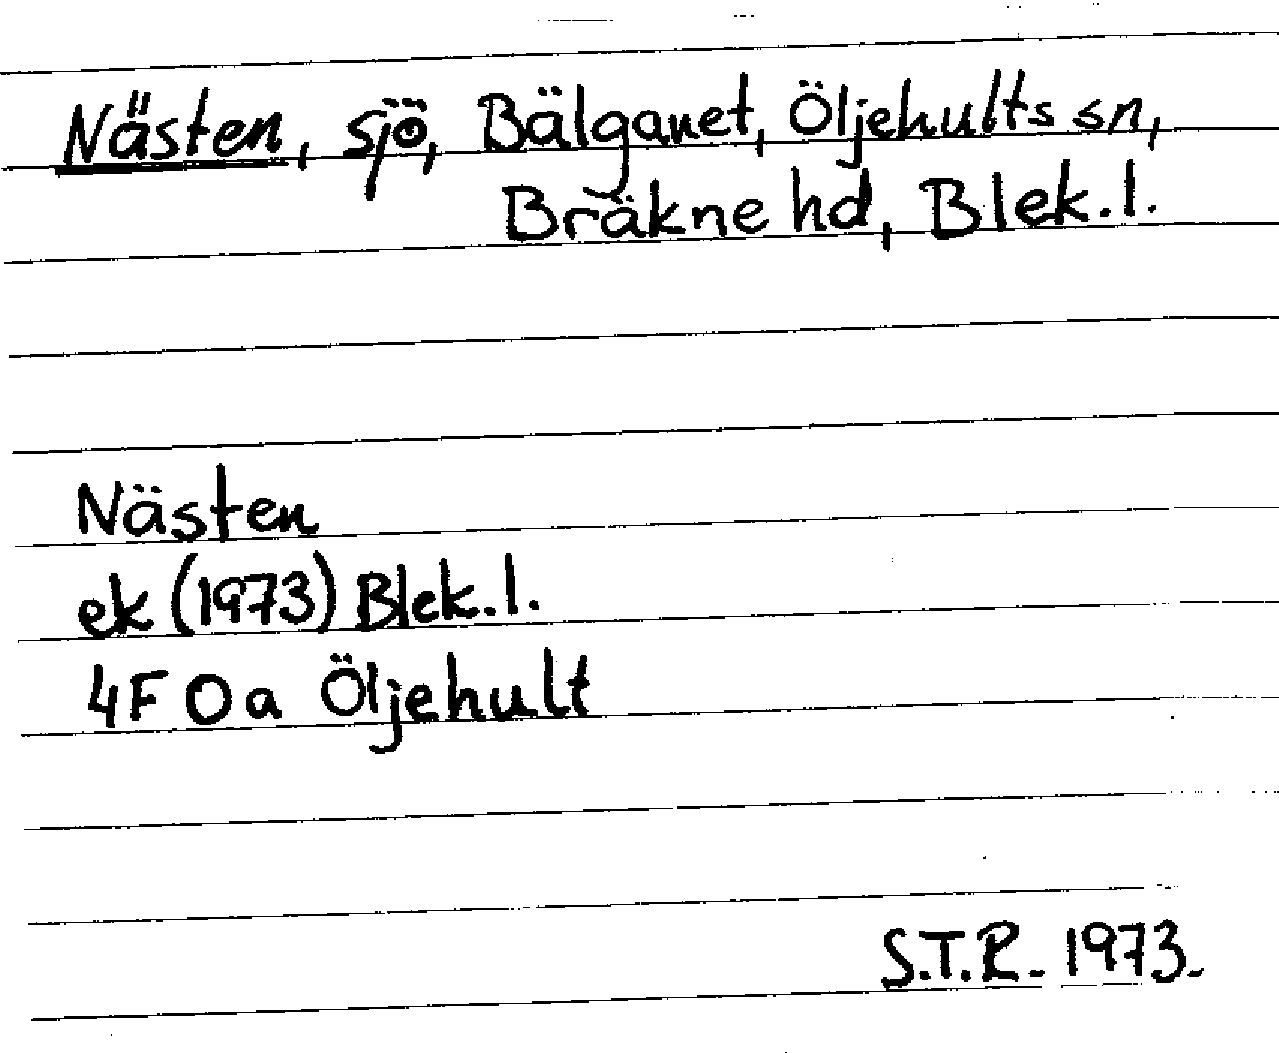 Nästen, sjö, Bälganet, Öljehults sn,
Bräkne hd, Blek. l.
Nästen
ek (1973) Blek. l.
4F 0a Öljehult
S.T.R. 1973.